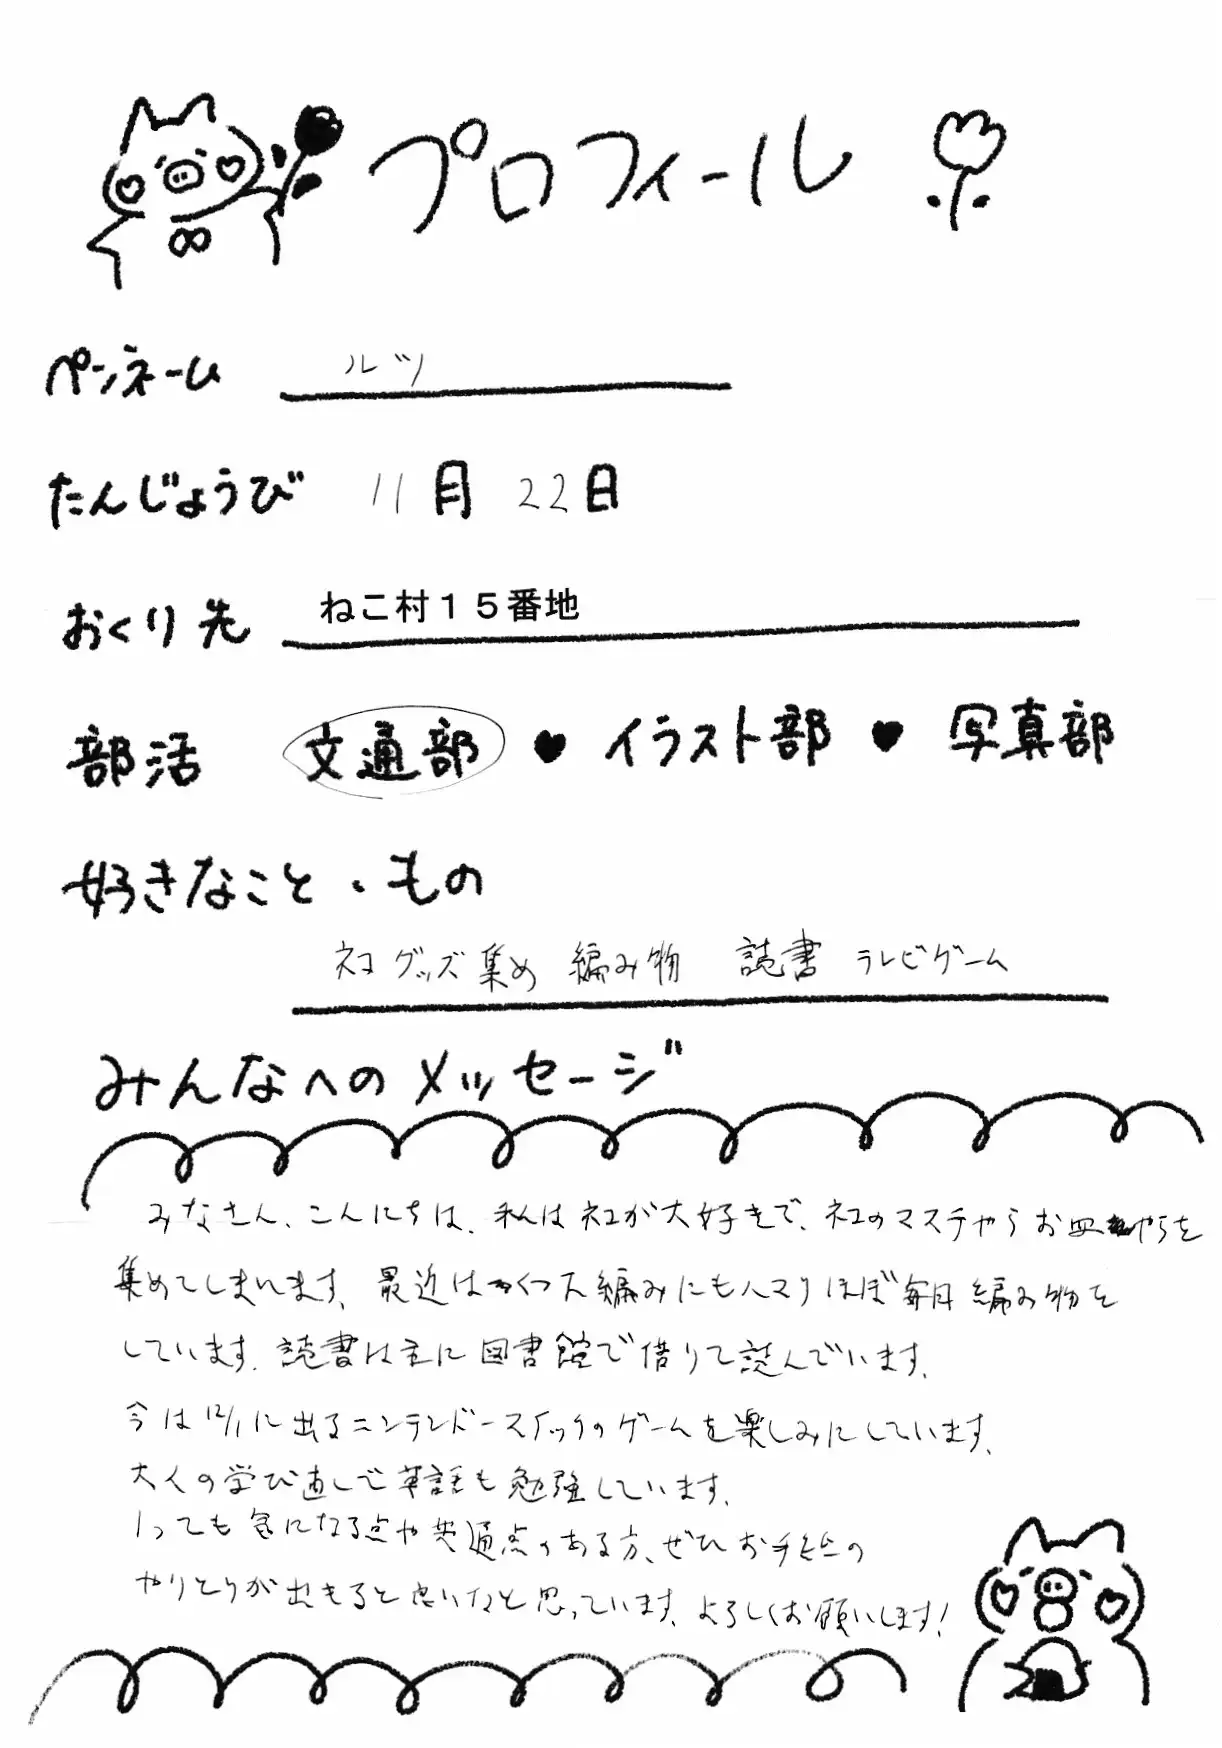 プロフィール
ペンネーム ルツ
たんじょうび 11月22日
おくり先 ねこ村15番地
部活 文通部 ♥ イラスト部 ♥ 写真部
好きなこと・もの
ネコグッズ集め 編み物 読書 テレビゲーム
みんなへのメッセージ
みなさん、こんにちは、私はネコが大好きで、ネコのマステやらお皿やらを
集めてしまいます。最近はくつ下編みにもハマりほぼ毎日編み物を
しています。読書は主に図書館で借りて読んでいます。
今は12/1に出るニンテンドースイッチのゲームを楽しみにしています。
大人の学び直しで英語も勉強しています。
1つでも気になる点や共通点のある方、ぜひお手紙の
やりとりが出きると良いなと思っています。よろしくお願いします!